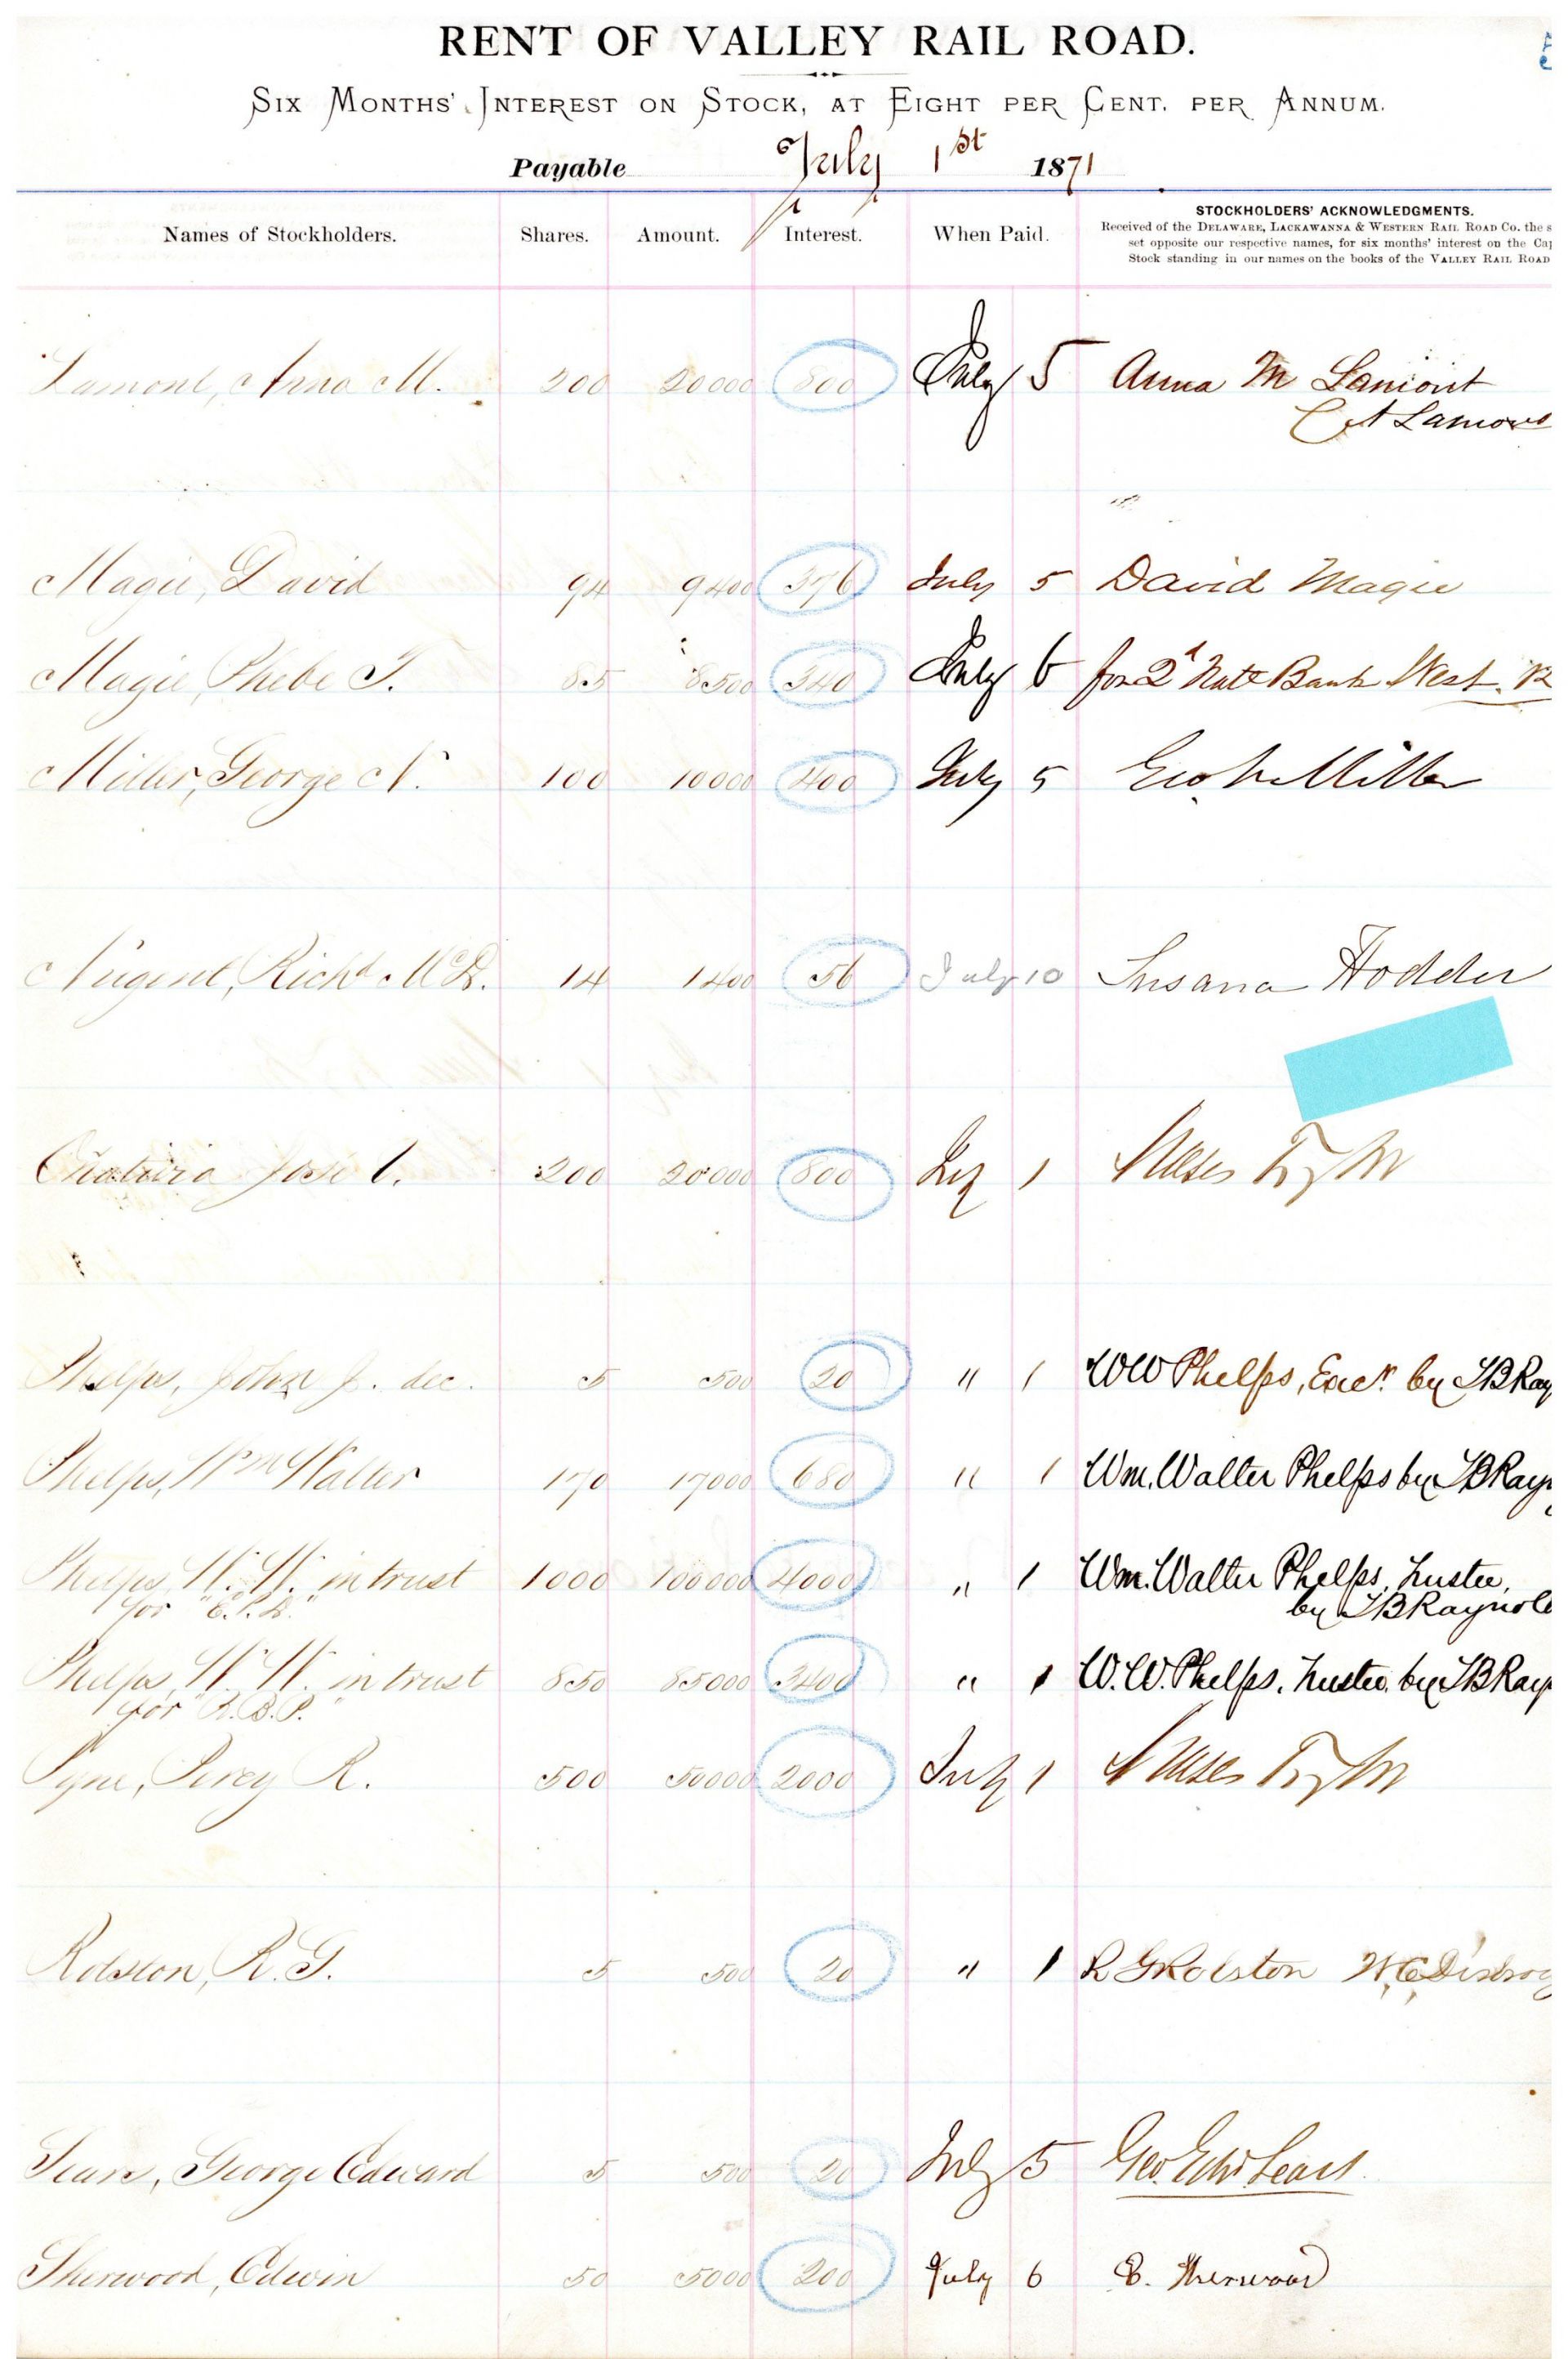 RENT OF VALLEY RAIL ROAD.
SIX MONTHS' INTEREST ON STOCK, AT EIGHT PER CENT. PER ANNUM.
Payable July 1st 1871
Names of Stockholders. Shares. Amount. Interest. When Paid.
STOCKHOLDERS' ACKNOWLEDGMENTS.
Received of the DELAWARE, LACKAWANNA & WESTERN RAIL ROAD Co. the s
set opposite our respective names, for six months' interest on the Cap
Stock standing in our names on the books of the VALLEY RAIL ROAD
Lamont, Anna M. 200 20000 800 July 5 Anna M Lamont
C A Lamont
Magie, David 94 9400 376 July 5 David Magie
Magie, Phebe T. 85 8500 340 July 6 for 2d Natl Bank West. R
Miller, George N. 100 10000 400 July 5 Geo N Miller
Nugent, Richd McD. 14 1400 56 July 10 Susana Hodder
200 20000 800 July 1 Moses Taylor
Phelps, John J. dec. 5 500 20 " 1 WW Phelps, Exec'r by SBRay
Phelps, Wm Walter 170 17000 680 " 1 Wm. Walter Phelps by SBRayn
Phelps, W. W. in trust 1000 100000 4000 " 1 Wm. Walter Phelps, Trustee,
for by SBRaynol
Phelps, W. W. in trust 850 85000 3400 " 1 W. W. Phelps, Trustee, by SBRay
for
Pyne, Percy R. 500 50000 2000 July 1 Moses Taylor
Rolston, R. G. 5 500 20 " 1 R G Rolston
Sears, George Edward 5 500 20 July 5 Geo. Edw Sears.
Sherwood, Edwin 50 5000 200 July 6 E. Sherwood